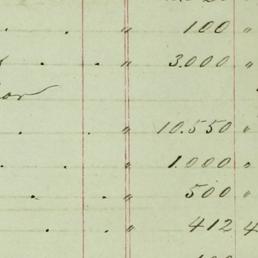 " 100 "
" 3.000 "
" 10.550 "
" 1.000 "
" 500 "
" 412 4